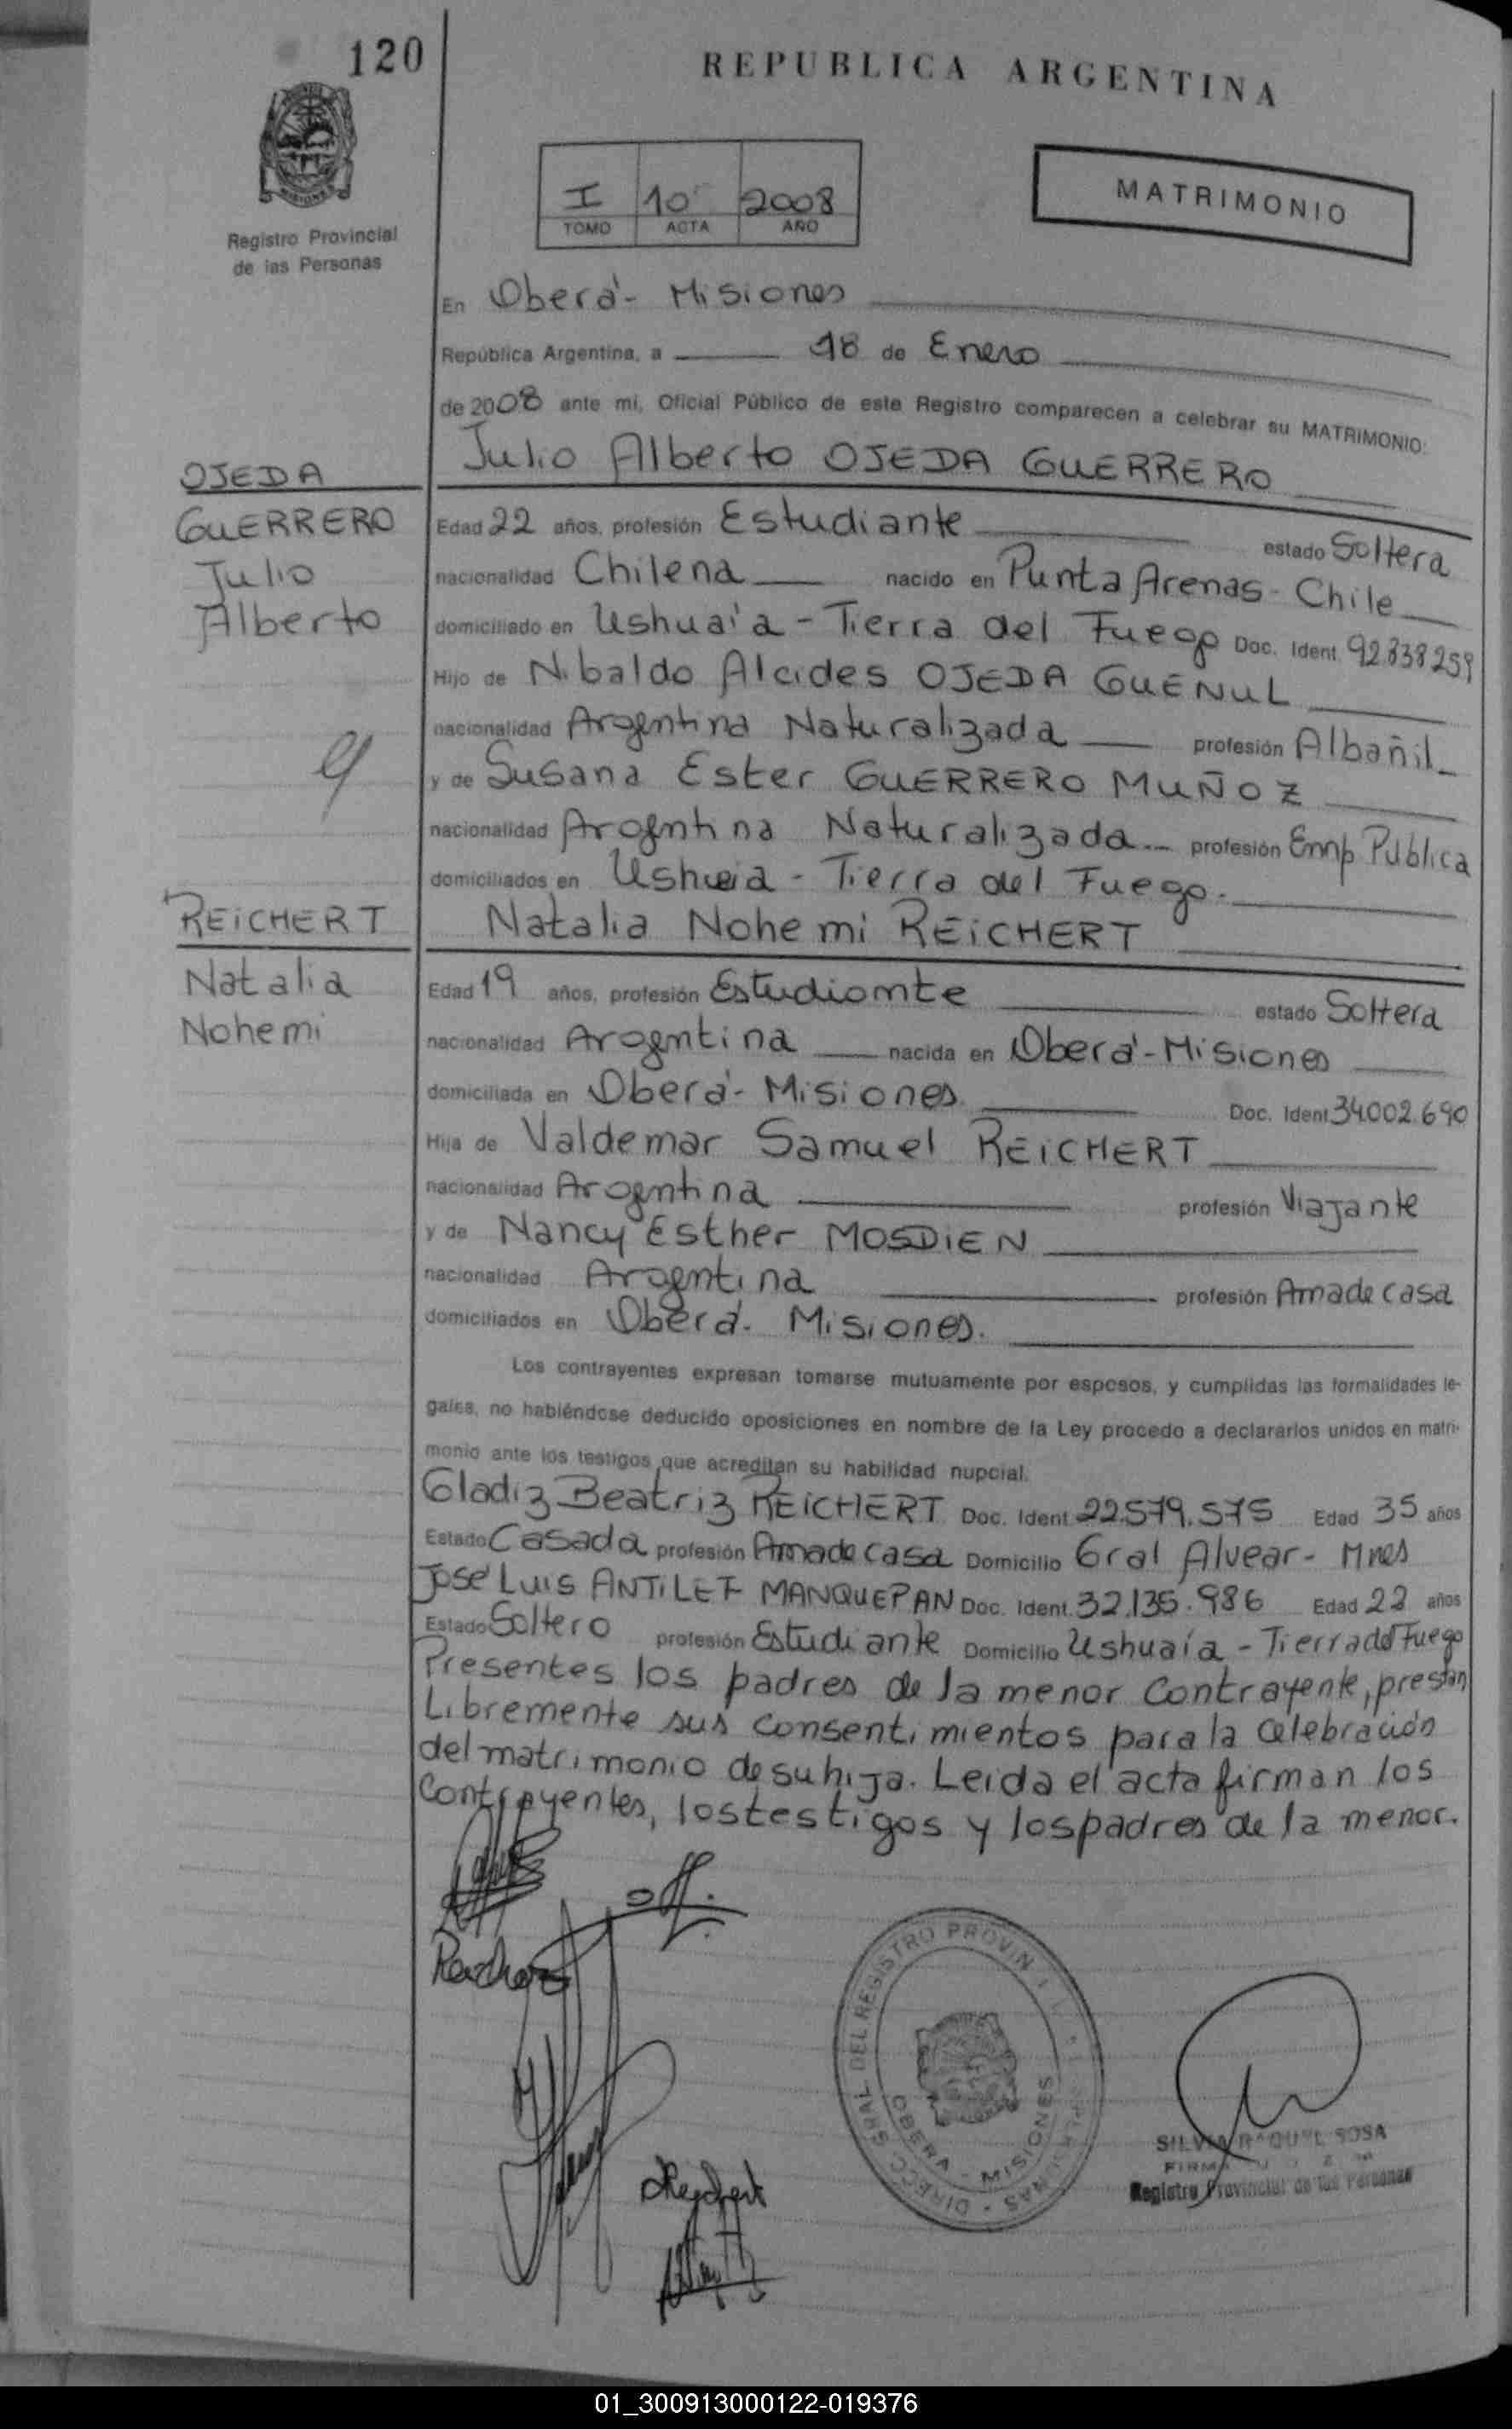 120
REPUBLICA ARGENTINA
MISIONES
Registro Provincial
de las Personas
I 10 2008
TOMO ACTA AÑO
MATRIMONIO
En Oberá - Misiones
República Argentina, a 18 de Enero
de 2008 ante mi, Oficial Público de este Registro comparecen a celebrar su MATRIMONIO:
Julio Alberto OJEDA GUERRERO
OJEDA
GUERRERO
Julio
Alberto
Edad 22 años, profesión Estudiante estado Soltera
nacionalidad Chilena nacido en Punta Arenas - Chile
domiciliado en Ushuaia - Tierra del Fuego Doc. Ident. 92.838259
Hijo de Nibaldo Alcides OJEDA GUENUL
nacionalidad Argentina Naturalizada profesión Albañil
y de Susana Ester GUERRERO MUÑOZ
nacionalidad Argentina Naturalizada profesión Emp Publica
domiciliados en Ushuaia - Tierra del Fuego.
REICHERT
Natalia
Nohemi
Natalia Nohemi REICHERT
Edad 19 años, profesión Estudiante estado Soltera
nacionalidad Argentina nacida en Oberá - Misiones
domiciliada en Oberá - Misiones. Doc. Ident 34.002.690
Hija de Valdemar Samuel REICHERT
nacionalidad Argentina profesión Viajante
y de Nancy Esther MOSDIEN
nacionalidad Argentina profesión Ama de casa
domiciliados en Oberá - Misiones.
Los contrayentes expresan tomarse mutuamente por esposos, y cumplidas las formalidades le-
gales, no habiéndose deducido oposiciones en nombre de la Ley procedo a declararlos unidos en matri-
monio ante los testigos que acreditan su habilidad nupcial.
Gladiz Beatriz REICHERT Doc. Ident 22.579.575 Edad 35 años
Estado Casada profesión Ama de casa Domicilio Gral Alvear - Mnes
José Luis ANTILEF MANQUEPAN Doc. Ident. 32.135.986 Edad 22 años
Estado Soltero profesión Estudiante Domicilio Ushuaía - Tierra del Fuego
Presentes los padres de la menor contrayente, prestan
Libremente sus consentimientos para la celebración
del matrimonio de su hija. Leida el acta firman los
contrayentes, los testigos y los padres de la menor.
DIRECC. GRAL DEL REGISTRO PROVIN
OBERA - MISIONES
SILVIA RAQUEL SOSA
Registro Provincial de las Personas
01_300913000122-019376